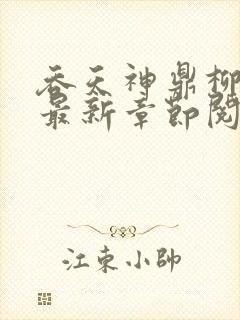 吞天神鼎柳
最新章節閱
江東小帥